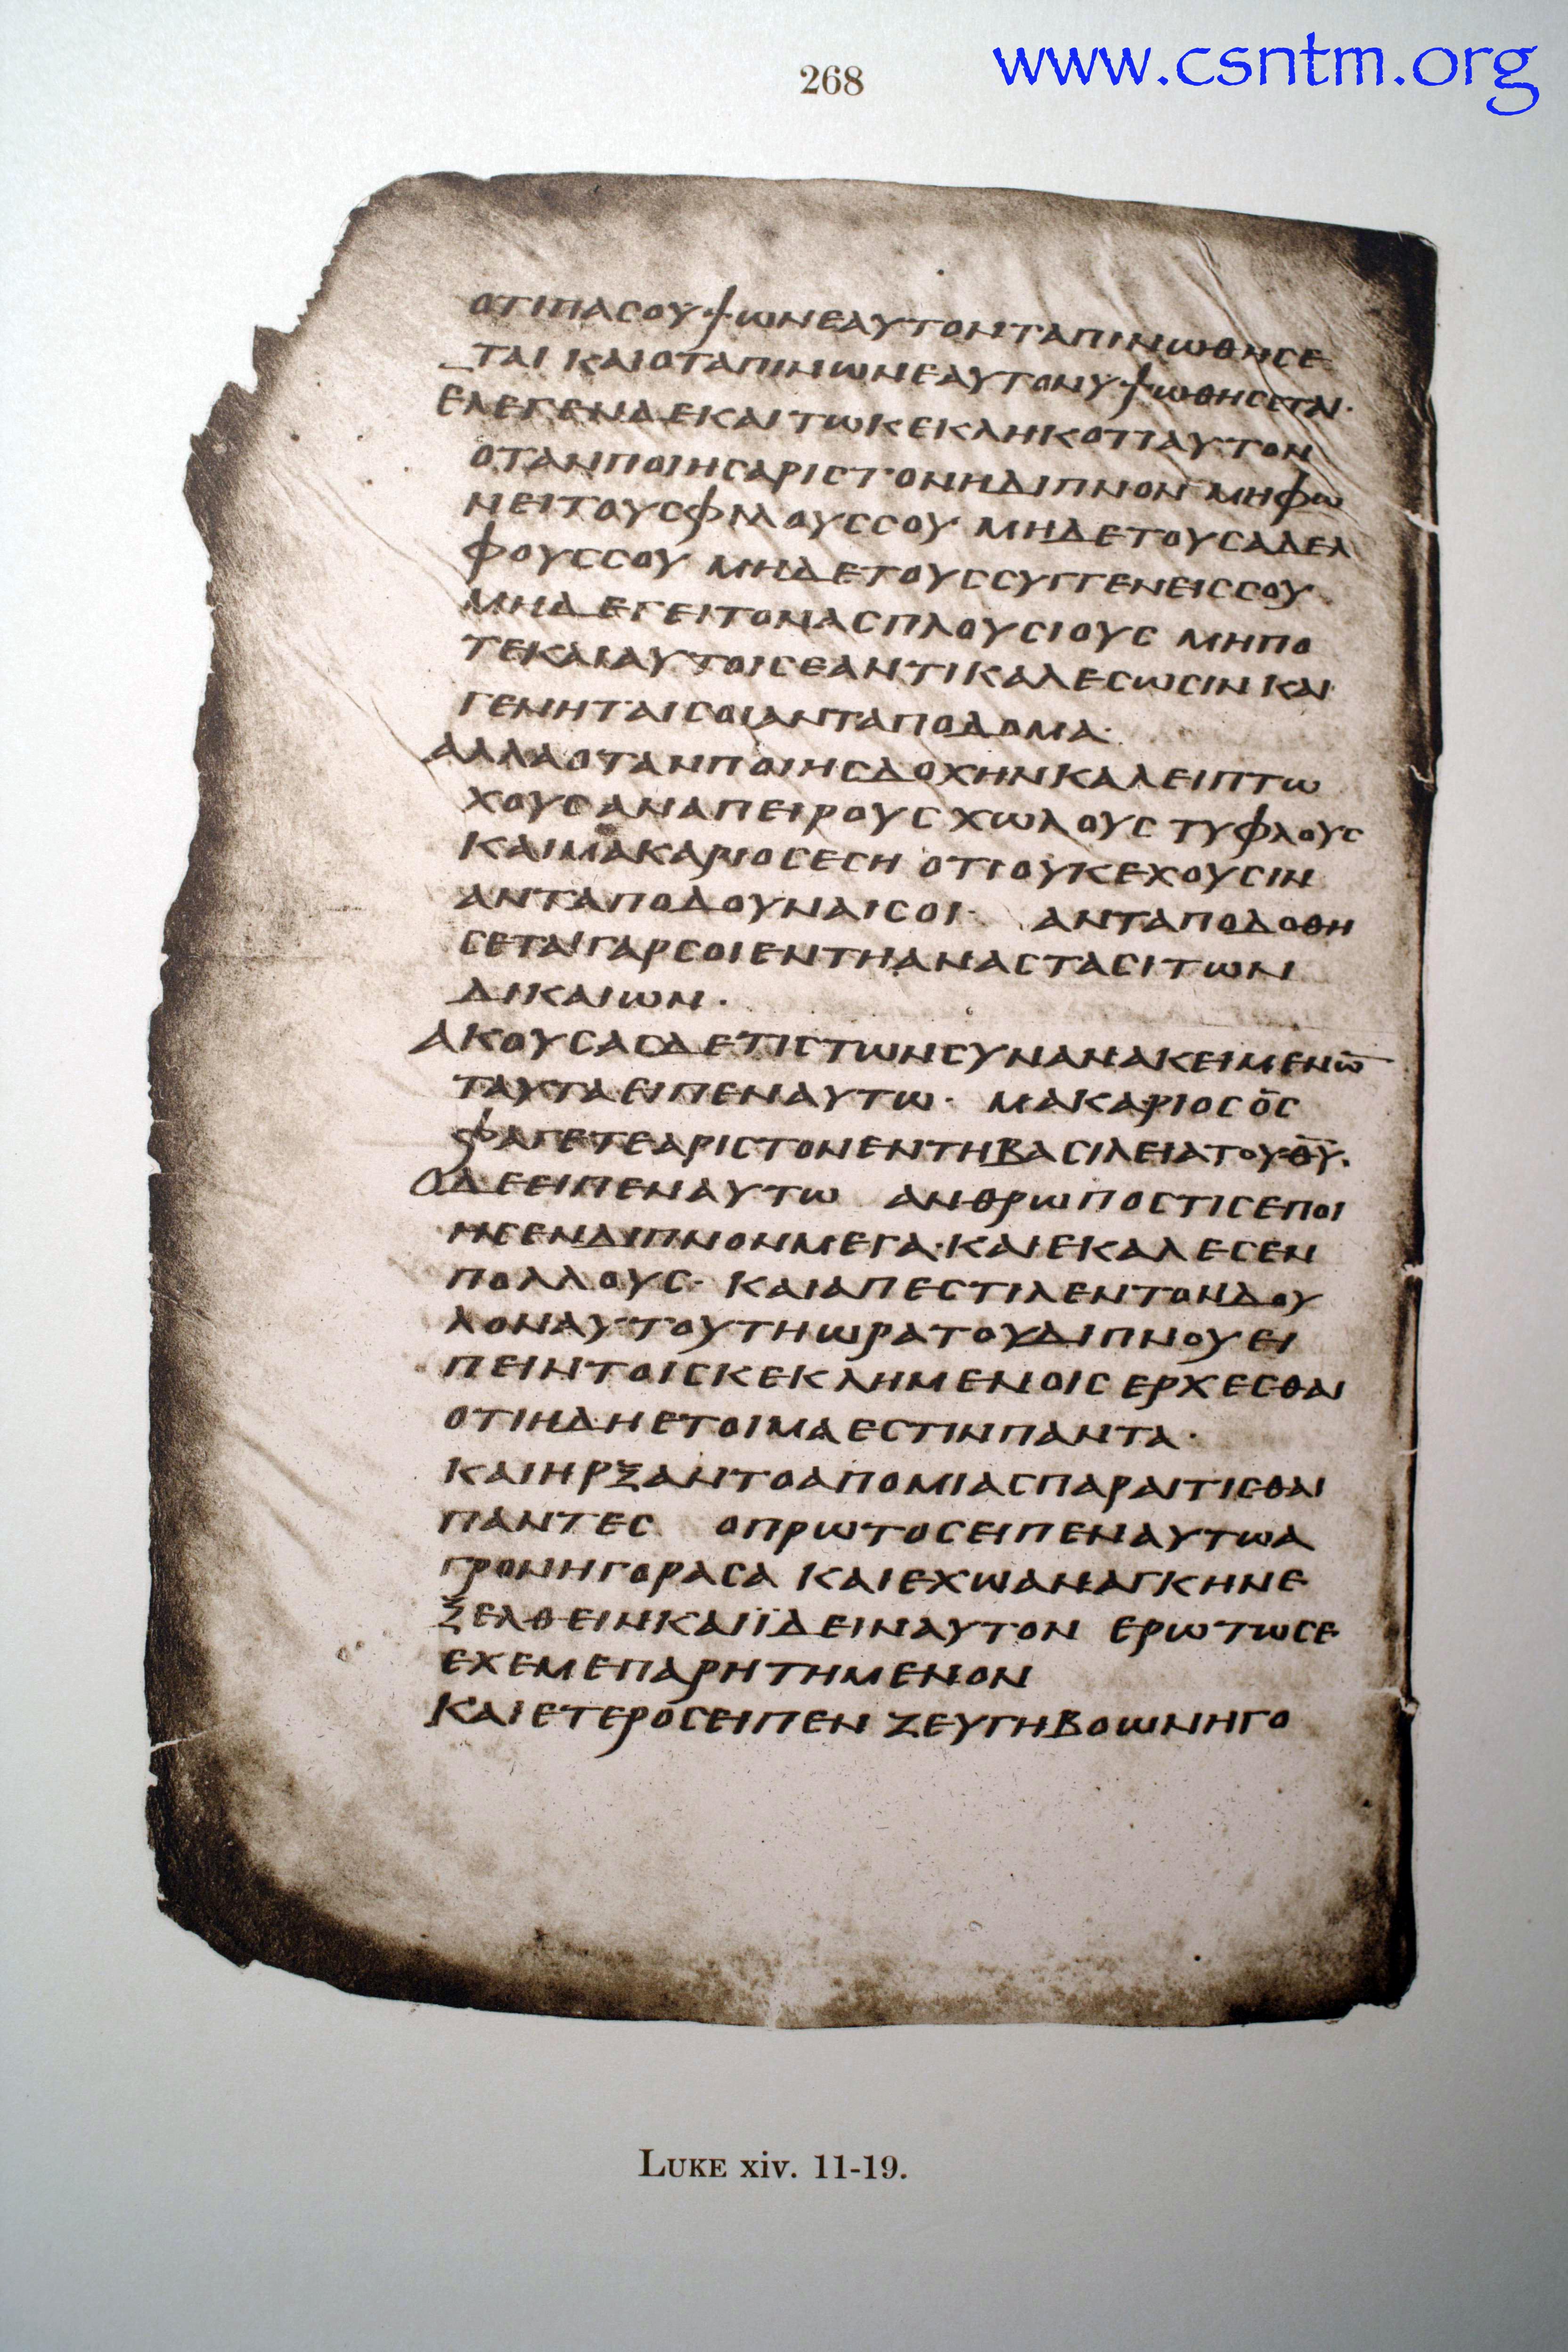 268
www.csntm.org
ΟΤΙΠΑCΟΥΨΩΝΕΑΥΤΟΝΤΑΠΙΝΩΘΗCΕ
ΤΑΙ ΚΑΙΟΤΑΠΙΝΩΝΕΑΥΤΟΝΥΨΩΘΗCΕΤΑΙ·
ΕΛΕΓΕΝΔΕΚΑΙΤΩΚΕΚΛΗΚΟΤΙΑΥΤΟΝ
ΟΤΑΝΠΟΙΗCΑΡΙCΤΟΝΗΔΙΠΝΟΝ ΜΗΦΩ
ΝΕΙΤΟΥCΦΙΛΟΥCCΟΥ ΜΗΔΕΤΟΥCΑΔΕΛ
ΦΟΥCCΟΥ ΜΗΔΕΤΟΥCCΥΓΓΕΝΕΙCCΟΥ
ΜΗΔΕΓΕΙΤΟΝΑCΠΛΟΥCΙΟΥC ΜΗΠΟ
ΤΕΚΑΙΑΥΤΟΙCΕΑΝΤΙΚΑΛΕCΩCΙΝ ΚΑΙ
ΓΕΝΗΤΑΙCΟΙΑΝΤΑΠΟΔΟΜΑ·
ΑΛΛΑΟΤΑΝΠΟΙΗCΔΟΧΗΝΚΑΛΕΙΠΤΩ
ΧΟΥCΑΝΑΠΕΙΡΟΥCΧΩΛΟΥC ΤΥΦΛΟΥC
ΚΑΙΜΑΚΑΡΙΟCΕCΗ ΟΤΙΟΥΚΕΧΟΥCΙΝ
ΑΝΤΑΠΟΔΟΥΝΑΙCΟΙ· ΑΝΤΑΠΟΔΟΘΗ
CΕΤΑΙΓΑΡCΟΙΕΝΤΗΑΝΑCΤΑCΙΤΩΝ
ΔΙΚΑΙΩΝ·
ΑΚΟΥCΑCΔΕΤΙCΤΩΝCΥΝΑΝΑΚΕΙΜΕΝΩ̅
ΤΑΥΤΑΕΙΠΕΝΑΥΤΩ· ΜΑΚΑΡΙΟC ΟC
ΦΑΓΕΤΕΑΡΙCΤΟΝΕΝΤΗΒΑCΙΛΕΙΑΤΟΥΘ̅Υ̅·
ΟΔΕΕΙΠΕΝΑΥΤΩ ΑΝΘΡΩΠΟCΤΙCΕΠΟΙ
ΗCΕΝΔΙΠΝΟΝΜΕΓΑ·ΚΑΙΕΚΑΛΕCΕΝ
ΠΟΛΛΟΥC· ΚΑΙΑΠΕCΤΙΛΕΝΤΟΝΔΟΥ
ΛΟΝΑΥΤΟΥΤΗΩΡΑΤΟΥΔΙΠΝΟΥΕΙ
ΠΕΙΝΤΟΙCΚΕΚΛΗΜΕΝΟΙC ΕΡΧΕCΘΑΙ
ΟΤΙΗΔΗΕΤΟΙΜΑΕCΤΙΝΠΑΝΤΑ·
ΚΑΙΗΡΞΑΝΤΟΑΠΟΜΙΑCΠΑΡΑΙΤΙCΘΑΙ
ΠΑΝΤΕC ΟΠΡΩΤΟCΕΙΠΕΝΑΥΤΩΑ
ΓΡΟΝΗΓΟΡΑCΑ ΚΑΙΕΧΩΑΝΑΓΚΗΝΕ
ΞΕΛΘΕΙΝΚΑΙΪΔΕΙΝΑΥΤΟΝ ΕΡΩΤΩCΕ
ΕΧΕΜΕΠΑΡΗΤΗΜΕΝΟΝ
ΚΑΙΕΤΕΡΟCΕΙΠΕΝ ΖΕΥΓΗΒΟΩΝΗΓΟ
LUKE xiv. 11-19.